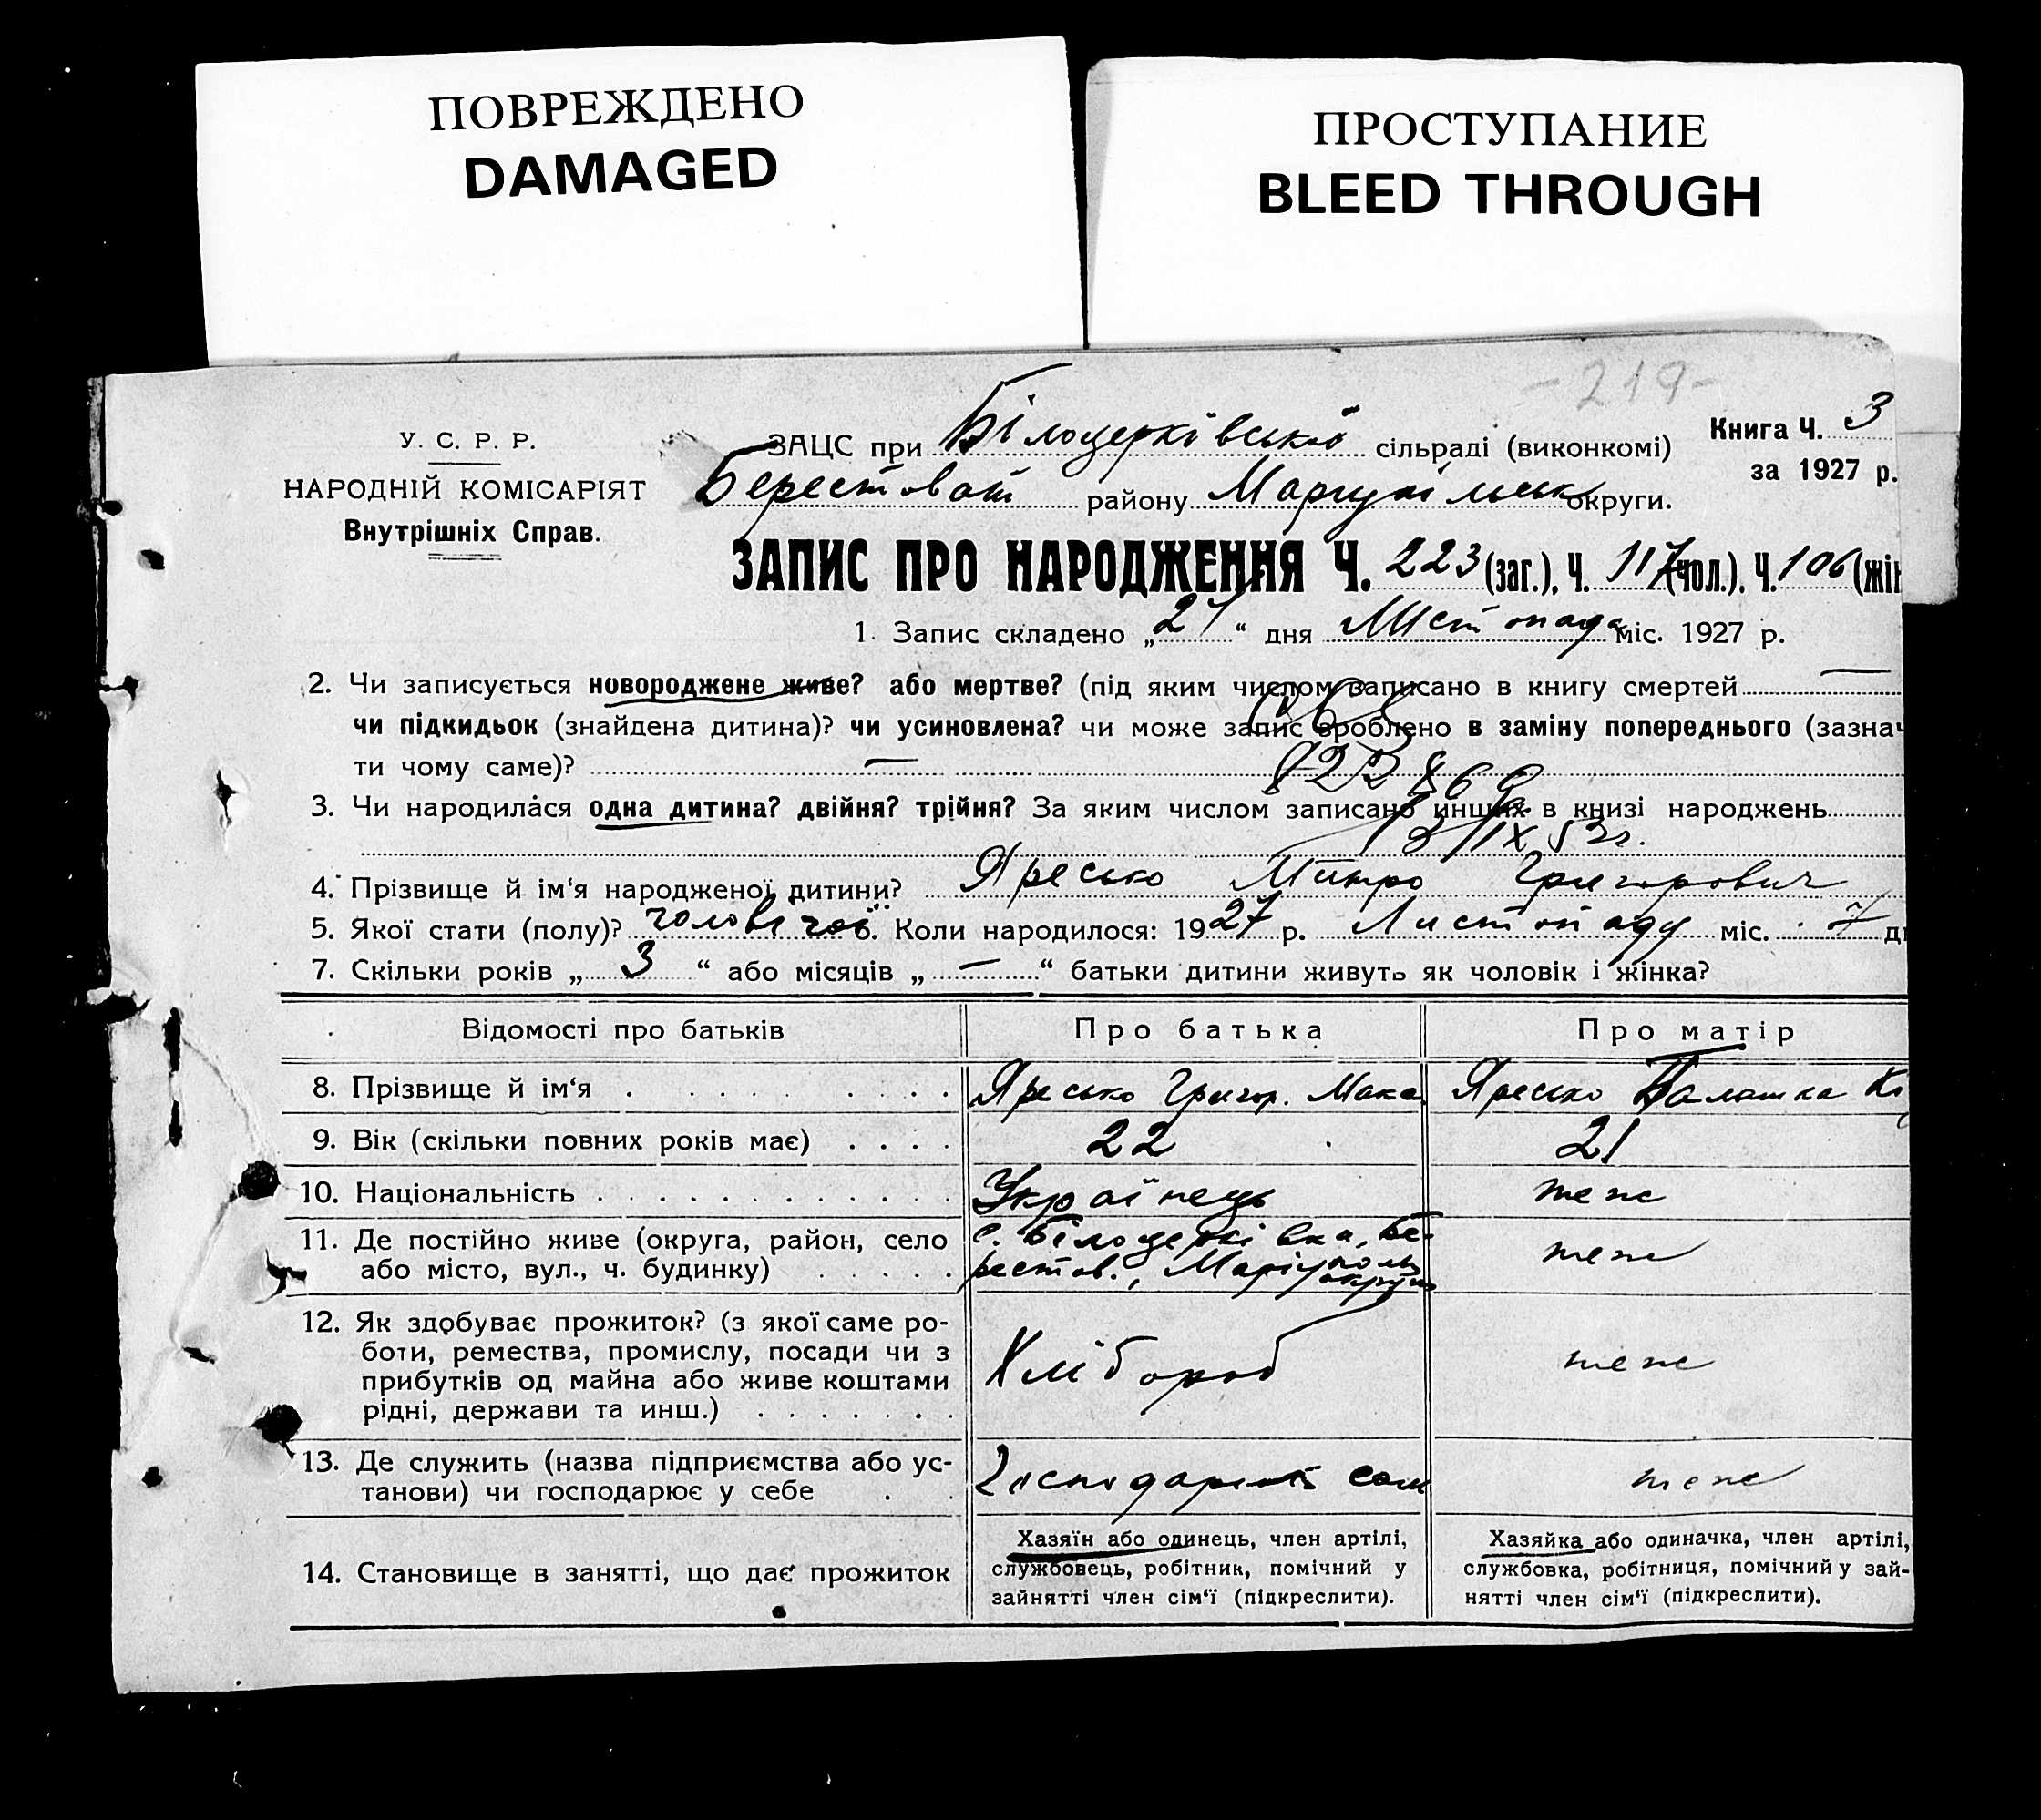 ПОВРЕЖДЕНО
DAMAGED
ПРОСТУПАНИЕ
BLEED THROUGH
-219-
У. С. Р. Р.
НАРОДНІЙ КОМІСАРІЯТ
Внутрішніх Справ.
Книга Ч. 3
за 1927 р.
ЗАЦС при Білоцерківській сільраді (виконкомі)
Берестоват району Маріупільськ округи.
ЗАПИС ПРО НАРОДЖЕННЯ Ч. 223 (заг.), Ч. 117 (чол.), Ч. 106 (жін
1. Запис складено „27“ дня Листопада міс. 1927 р.
2. Чи записується новороджене живе? або мертве? (під яким числом записано в книгу смертей —
чи підкидьок (знайдена дитина)? чи усиновлена? чи може запис зроблено в заміну попереднього (зазнач
ти чому саме)? —
3. Чи народилася одна дитина? двійня? трійня? За яким числом записано инших в книзі народжень
13/IX 53г.
4. Прізвище й ім‘я народженої дитини? Яресько Митро Григорович
5. Якої стати (полу)? чоловічої 6. Коли народилося: 1927 р. Листопаду міс. 7 д
7. Скільки років „3“ або місяців „—“ батьки дитини живуть як чоловік і жінка?
Відомості про батьків Про батька Про матір
8. Прізвище й ім‘я Яресько Григор. Мака Яресько Палашка Кі
9. Вік (скільки повних років має) 22 21
10. Національність Українець теж
11. Де постійно живе (округа, район, село с. Білоцерківка, Бе-
або місто, вул., ч. будинку) рестов., Маріуполь округи теж
12. Як здобуває прожиток? (з якої саме ро-
боти, ремества, промислу, посади чи з
прибутків од майна або живе коштами Хлібороб теж
рідні, держави та инш.)
13. Де служить (назва підприємства або ус-
танови) чи господарює у себе Господарює сам теж
14. Становище в занятті, що дає прожиток
Хазяїн або одинець, член артілі,
службовець, робітник, помічний у
зайнятті член сім‘ї (підкреслити).
Хазяйка або одиначка, член артілі,
службовка, робітниця, помічний у зай-
нятті член сім‘ї (підкреслити).